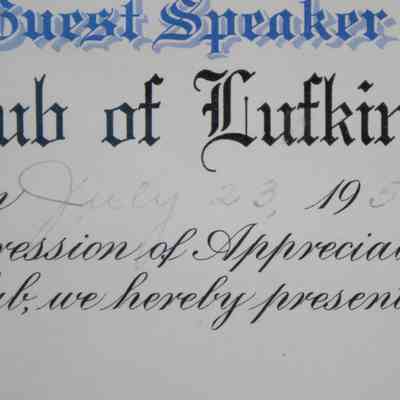 Guest Speaker
ub of Lufkin
n July 23, 195
ression of Apprecia
ub, we hereby present